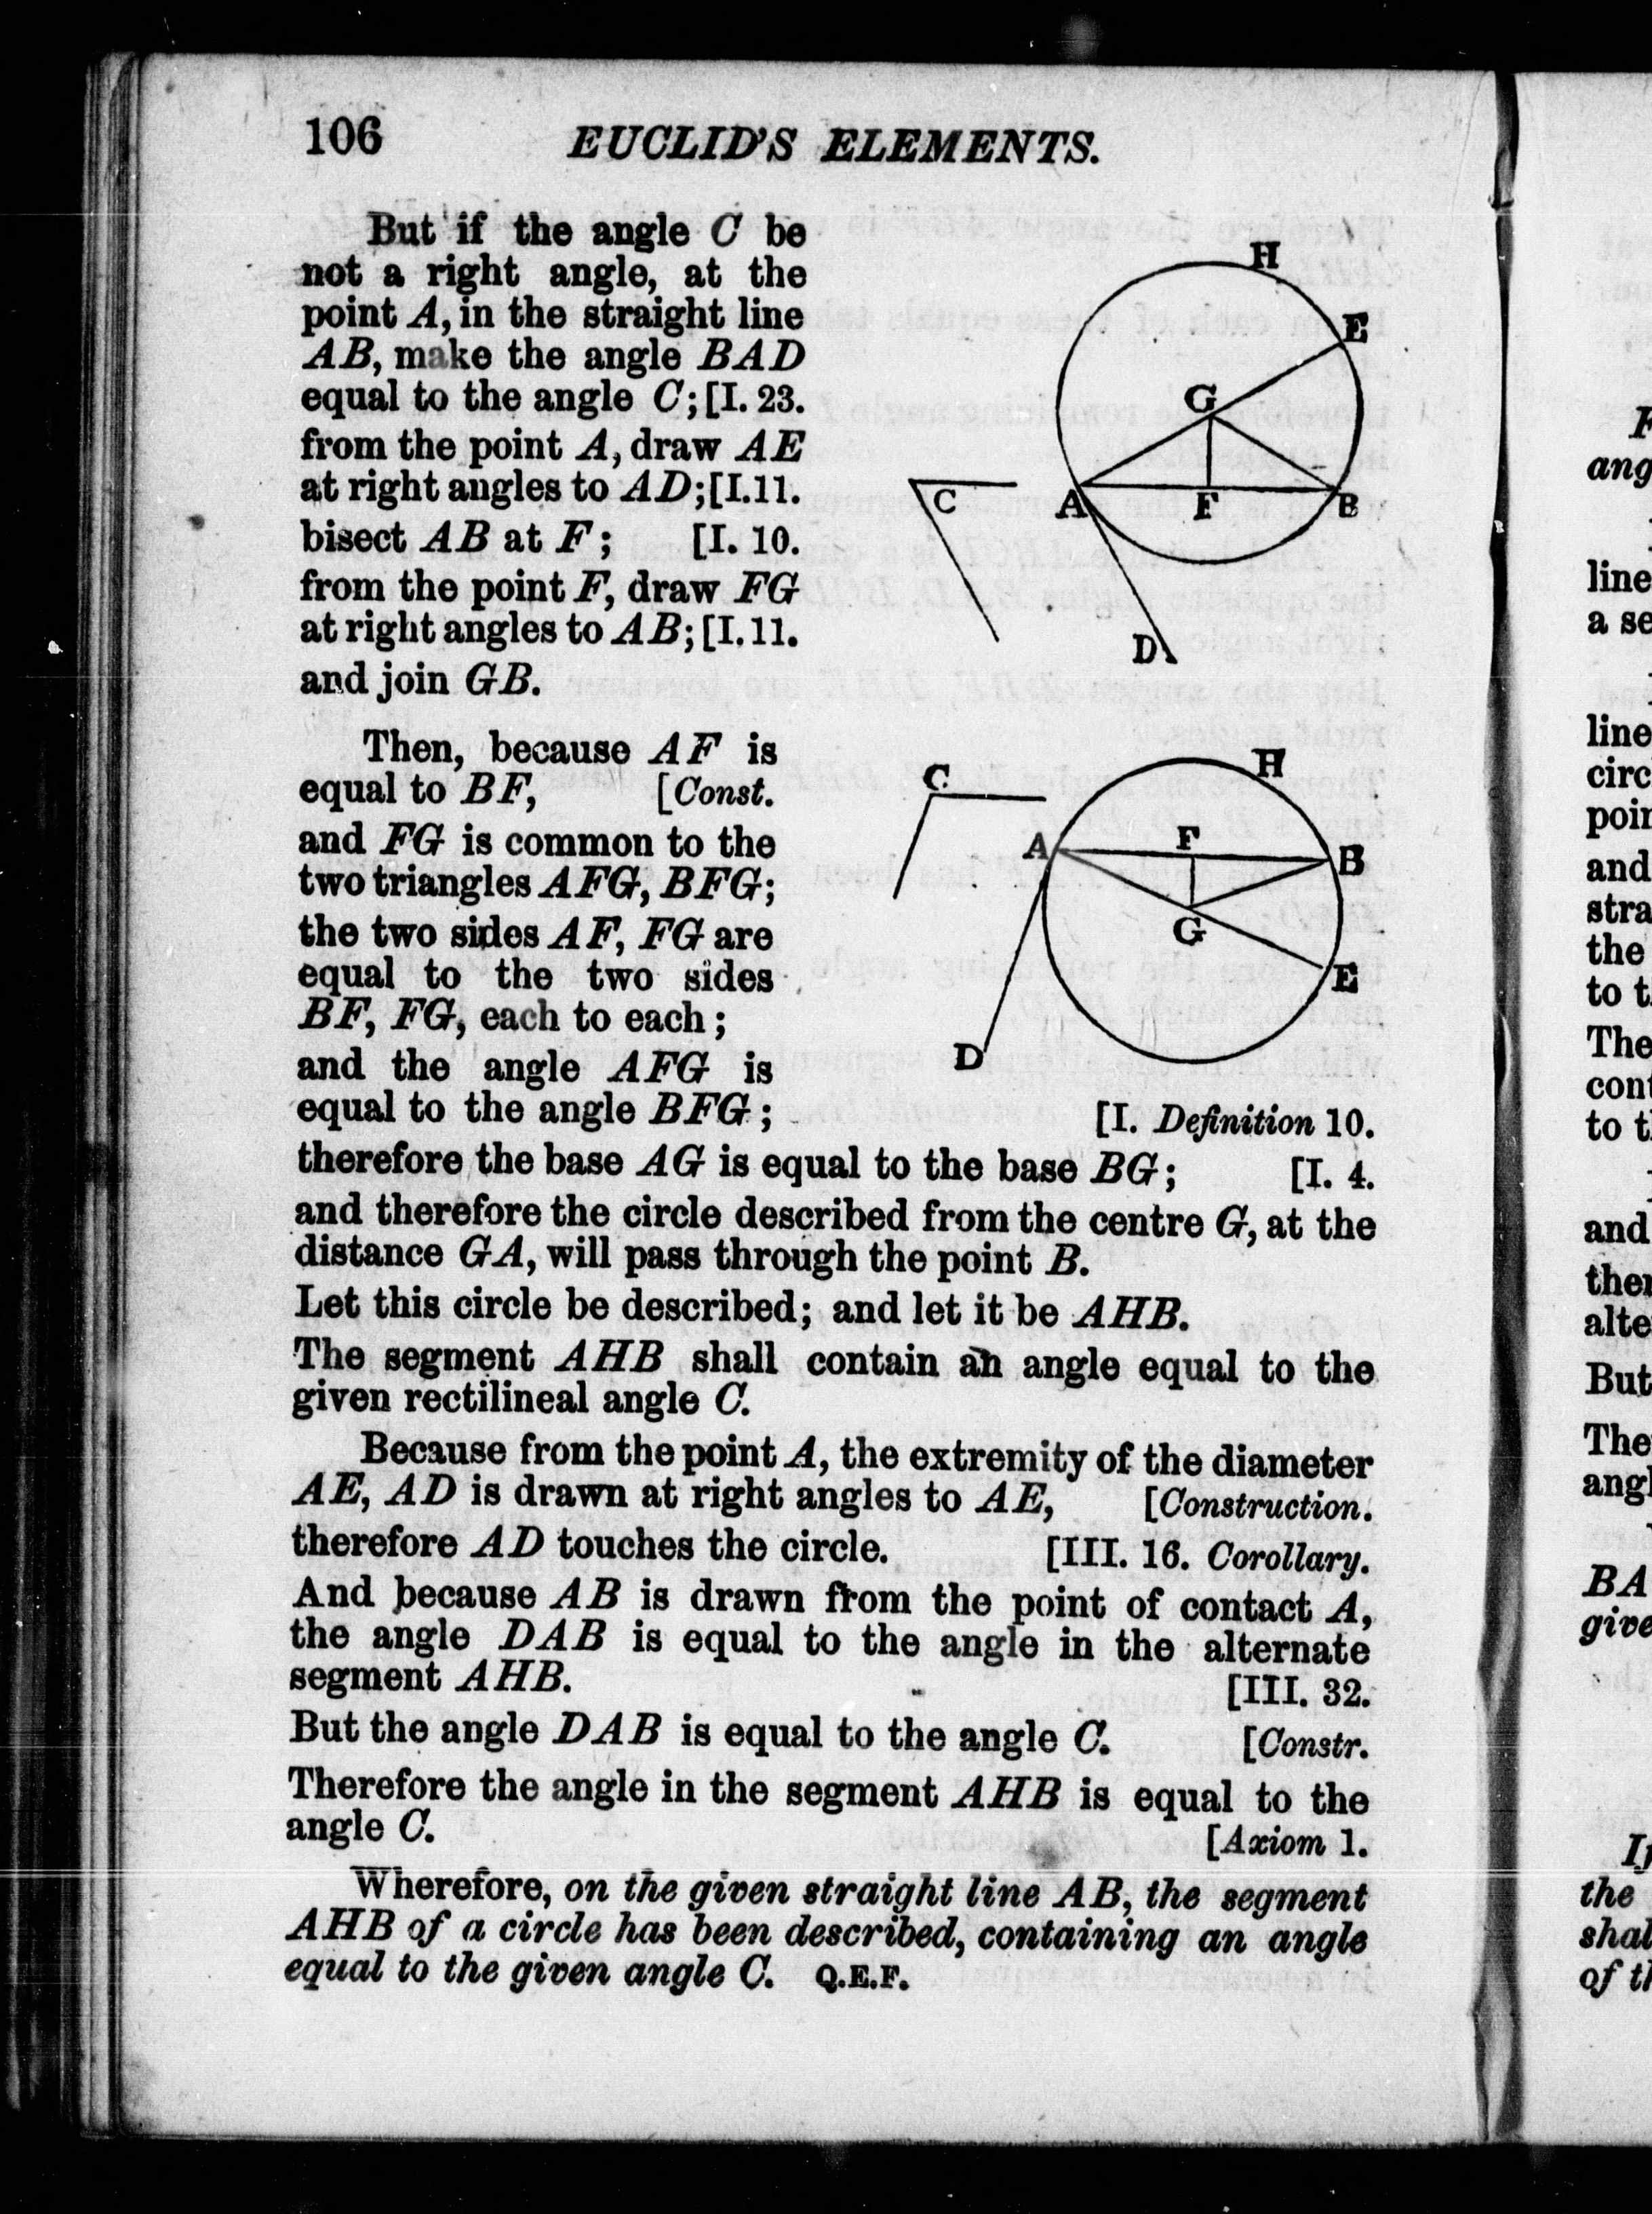 106 EUCLID'S ELEMENTS.
But if the angle C be
not a right angle, at the
point A, in the straight line
AB, make the angle BAD
equal to the angle C; [I. 23.
from the point A, draw AE
at right angles to AD; [I. 11.
bisect AB at F; [I. 10.
from the point F, draw FG
at right angles to AB; [I. 11.
and join GB.
H
E
G
C
A
F
B
D
Then, because AF is
equal to BF, [Const.
and FG is common to the
two triangles AFG, BFG;
the two sides AF, FG are
equal to the two sides
BF, FG, each to each;
and the angle AFG is
equal to the angle BFG; [I. Definition 10.
C
H
A
F
B
G
E
D
therefore the base AG is equal to the base BG; [I. 4.
and therefore the circle described from the centre G, at the
distance GA, will pass through the point B.
Let this circle be described; and let it be AHB.
The segment AHB shall contain an angle equal to the
given rectilineal angle C.
Because from the point A, the extremity of the diameter
AE, AD is drawn at right angles to AE, [Construction.
therefore AD touches the circle. [III. 16. Corollary.
And because AB is drawn from the point of contact A,
the angle DAB is equal to the angle in the alternate
segment AHB. [III. 32.
But the angle DAB is equal to the angle C. [Constr.
Therefore the angle in the segment AHB is equal to the
angle C. [Axiom 1.
Wherefore, on the given straight line AB, the segment
AHB of a circle has been described, containing an angle
equal to the given angle C. Q.E.F.
ang
line
a se
line
circ
poin
and
stra
the
to t
The
cont
to t
and
ther
alte
But
The
angl
BA
give
the
shal
of th